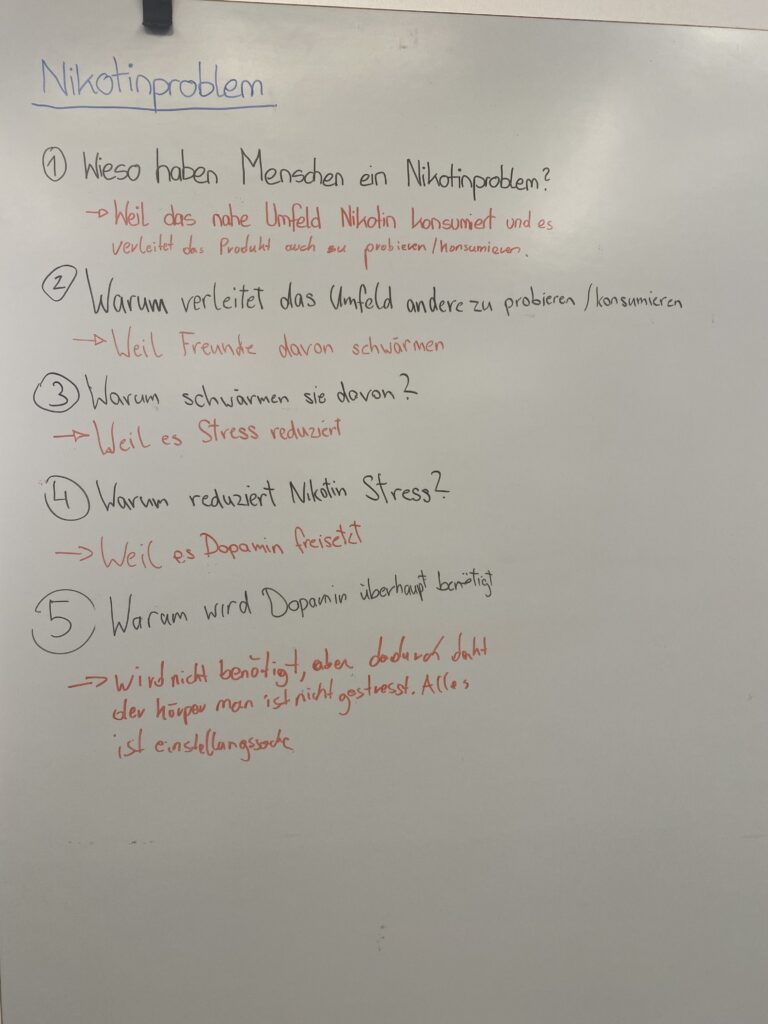 Nikotinproblem
① Wieso haben Menschen ein Nikotinproblem?
→ Weil das nahe Umfeld Nikotin konsumiert und es
verleitet das Produkt auch zu probieren/konsumieren.
② Warum verleitet das Umfeld andere zu probieren/konsumieren
→ Weil Freunde davon schwärmen
③ Warum schwärmen sie davon?
→ Weil es Stress reduziert
④ Warum reduziert Nikotin Stress?
→ Weil es Dopamin freisetzt
⑤ Warum wird Dopamin überhaupt benötigt
→ wird nicht benötigt, aber dadurch
der körper man ist nicht gestresst. Alles
ist einstellungssache